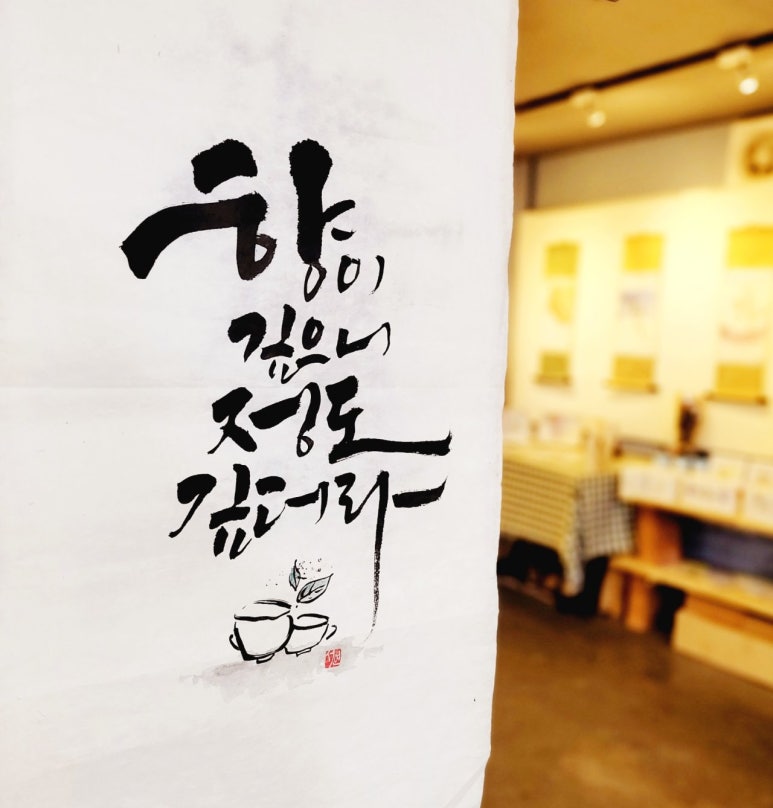 향이
깊으니
정도
깊더라